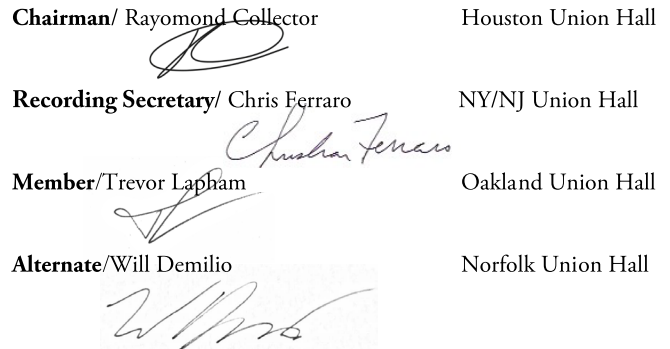 Chairman/ Rayomond Collector Houston Union Hall
Recording Secretary/ Chris Ferraro NY/NJ Union Hall
Christian Ferraro
Member/Trevor Lapham Oakland Union Hall
Alternate/Will Demilio Norfolk Union Hall